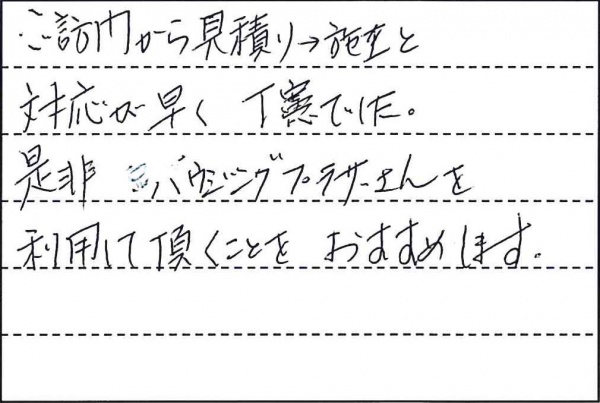 ご訪門から見積り→施工と
対応が早く 丁寧でした。
是非 ハウジングプラザーさんを
利用して頂くことを おすすめします。